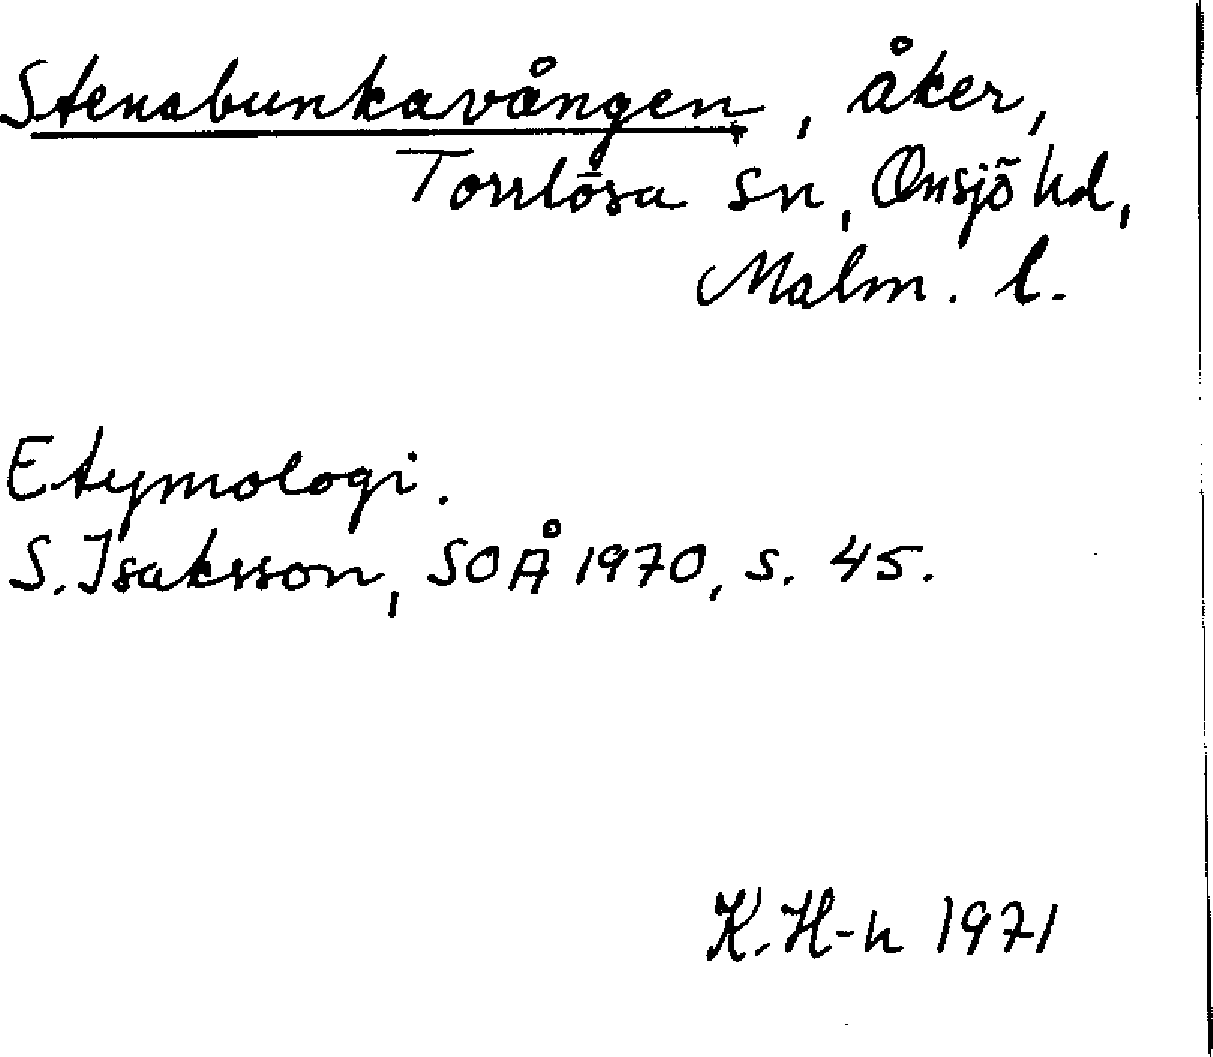 Stenabunkavången, åker,
Torrlösa sn, Onsjö hd,
Malm. l.
Etymologi.
S. Isaksson, SOÅ 1970, s. 45.
K. H-n 1971